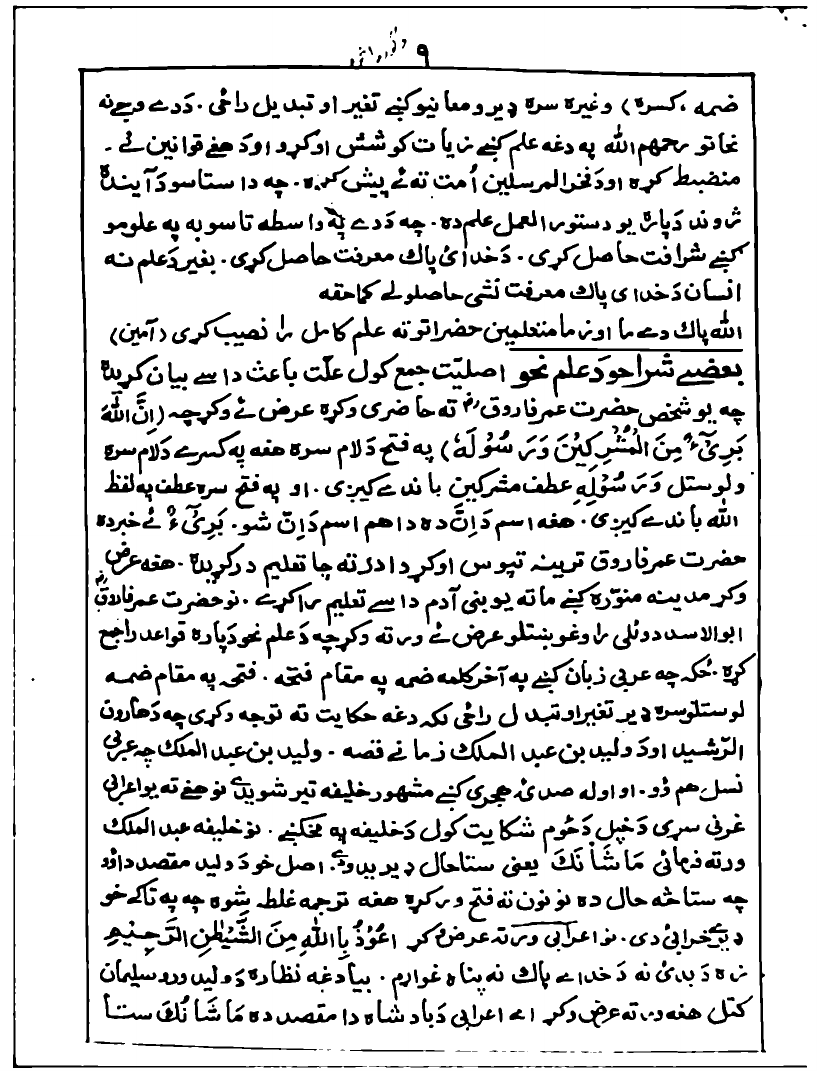 ۹
ضمہ ،کسرہ) وغیرہ سرہ ډیرو معانیو کښے تغیر او تبدیل راځی. دَدے وجے نہ
نحاتو رحمهم الله په دغه علم کښے زیات کوشش اوکړو اودَهغے قوانین ئے ۔
منضبط کړه اودَ فخرالمرسلین اُمت ته ئے پیش کړه. چه دا ستاسو دَآینده
ژوند دَپاره یو دستور العمل علم ده. چه دَدے په واسطه تاسو به په علومو
کښے شرافت حاصل کړی. دَ خدائ پاک معرفت حاصل کړی. بغیر دَعلم نه
انسان دَخدای پاک معرفت نشی حاصلولے کماحقه
الله پاک دے ما او زما متعلمین حضراتو ته علم کامل را نصیب کړی (آمین)
بعضے شراحو دَعلم نحو اصلیّت جمع کول علّت باعث داسے بیان کړیده
چه یو شخص حضرت عمر فاروقؓ ته حاضری وکړه عرض ئے وکړ چه (اِنَّ اللّٰهَ
بَرِیْٓءٌ مِنَ الْمُشْرِکِیْنَ وَرَسُوْلَهٗ) په فتح دَلام سره هغه په کسرے دَلام سره
ولوستل وَرَسُوْلِهٖ عطف مشرکین باندے کیږی. او په فتح سره عطف په لفظ
الله باندے کیږی. هغه اسم دَاِنَّ ده دا هم اسم دَاِنّ شو. بَرِیْٓءٌ ئے خبر ده
حضرت عمر فاروق ترینه تپوس اوکړ دا درته چا تعلیم درکړیده. هغه عرض
وکړ مدینه منوّره کښے ماته یو بنی آدم داسے تعلیم راکړے. نو حضرت عمر فاروقؓ
ابوالاسد دوئلی را وغوښتلو عرض ئے ورته وکړ چه دَ علم نحو دَپاره قواعد راجمع
کړه. ځکه چه عربی زبان کښے په آخر کلمه ضمه په مقام فتحه. فتحه په مقام ضمه
لوستلو سره ډیر تغیر او تبدل راځی لکه دغه حکایت ته توجه وکړی چه دَ هارون
الرّشید اودَ ولید بن عبد الملک زمانے قصه. ولید بن عبد الملک چه عربی
نسل هم ؤو. او اوله صدئ هجری کښے مشهور خلیفه تیر شویدے نو هغے ته یو اعرابی
غربی سړی دَخپل دَځوم شکایت کول دَخلیفه په مخکښے. نو خلیفه عبد الملک
ورته فرمائی مَا شَأنَکَ یعنی ستا حال ډیر بد وے. اصل خو دَ ولید مقصد داؤو
چه ستا څه حال ده نو نون ته فتح ورکړه هغه ترجمه غلطه شوه چه په تاکے خو
ډیرے خرابئ دی. نو اعرابی ورته عرض وکړ اَعُوْذُ بِاللّٰهِ مِنَ الشَّیْطٰنِ الرَّجِیْمِ
زه دَ بدئ نه دَ خداے پاک نه پناه غوارم. بیا دغه نظاره دَ ولید ورور سلیمان
کتل هغه ورته عرض وکړ اے اعرابی دَبادشاه دا مقصد ده مَا شَأنُکَ ستا